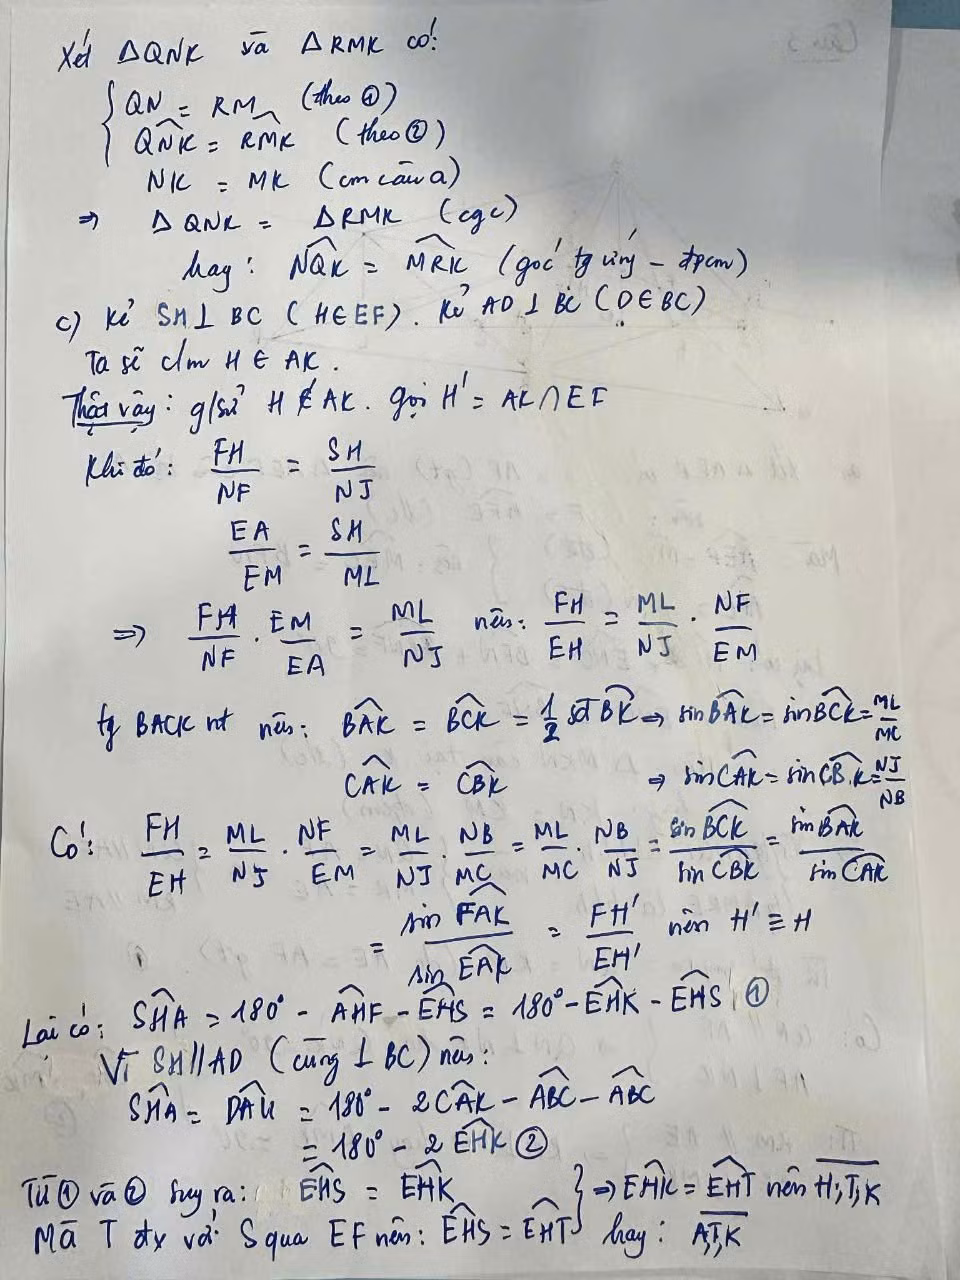 Xét ΔQNK và ΔRMK có:
QN = RM (theo ①)
∠QNK = ∠RMK (theo ②)
NK = MK (cm câu a)
⇒ ΔQNK = ΔRMK (cgc)
hay: ∠NQK = ∠MRK (góc tg ứng - đpcm)
c) Kẻ SH ⊥ BC (H ∈ EF). Kẻ AD ⊥ BC (D ∈ BC)
Ta sẽ c/m H ∈ AK.
Thật vậy: g/sử H ∉ AK. Gọi H' = AK ∩ EF
Khi đó: FH/NF = SH/NJ
EA/EM = SH/ML
⇒ FH/NF . EM/EA = ML/NJ nên: FH/EH = ML/NJ . NF/EM
tg BACK nt nên: ∠BAK = ∠BCK = 1/2 sđ BK ⇒ sin ∠BAK = sin ∠BCK = ML/MC
∠CAK = ∠CBK ⇒ sin ∠CAK = sin ∠CBK = NJ/NB
Có: FH/EH = ML/NJ . NF/EM = ML/NJ . NB/MC = ML/MC . NB/NJ = sin ∠BCK / sin ∠CBK = sin ∠BAK / sin ∠CAK
= sin ∠FAK / sin ∠EAK = FH'/EH' nên H' ≡ H
Lại có: ∠SHA = 180° - ∠AHF - ∠EHS = 180° - ∠EHK - ∠EHS ①
Vì SH // AD (cùng ⊥ BC) nên:
∠SHA = ∠DAK = 180° - 2∠CAK - ∠ABC - ∠ABC
= 180° - 2 ∠EHK ②
Từ ① và ② suy ra: ∠EHS = ∠EHK
Mà T đx với S qua EF nên: ∠EHS = ∠EHT } ⇒ ∠EHK = ∠EHT nên H,T,K
hay: A,T,K